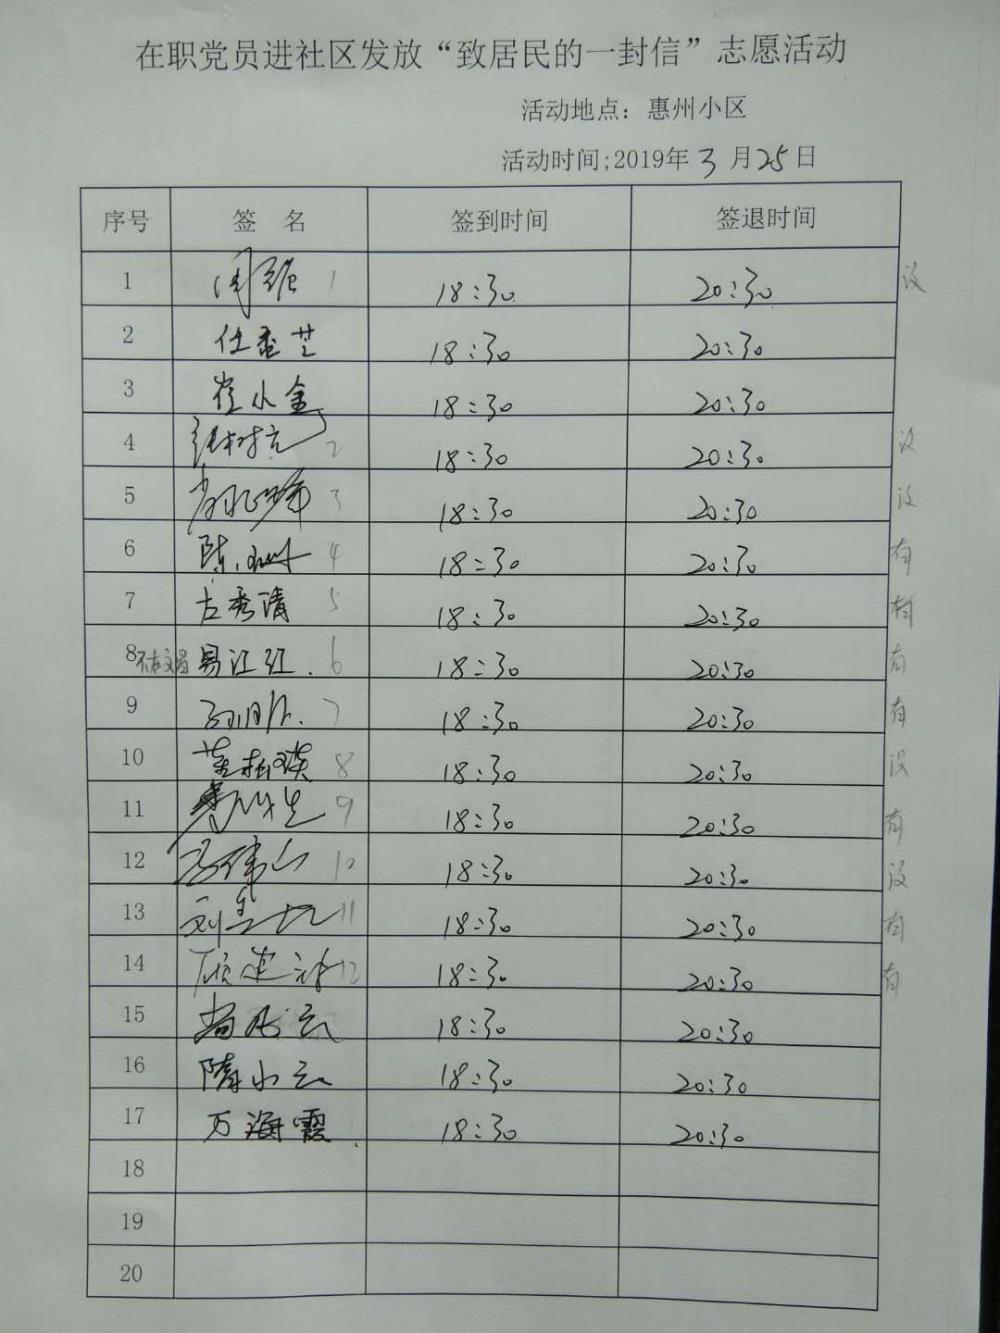 在职党员进社区发放“致居民的一封信”志愿活动
活动地点：惠州小区
活动时间;2019年3月25日
序号 签 名 签到时间 签退时间
1 1 18:30 20:30 没
2 18:30 20:30
3 崔小金 18:30 20:30
4 2 18:30 20:30 没
5 3 18:30 20:30 没
6 陈 4 18:30 20:30 有
7 古秀清 5 18:30 20:30 有
8 易江红 6 18:30 20:30 有
9 7 18:30 20:30 有
10 8 18:30 20:30 没
11 9 18:30 20:30 有
12 冯伟山 10 18:30 20:30 没
13 11 18:30 20:30 有
14 12 18:30 20:30 有
15 18:30 20:30
16 隋小云 18:30 20:30
17 万海霞 18:30 20:30
18
19
20